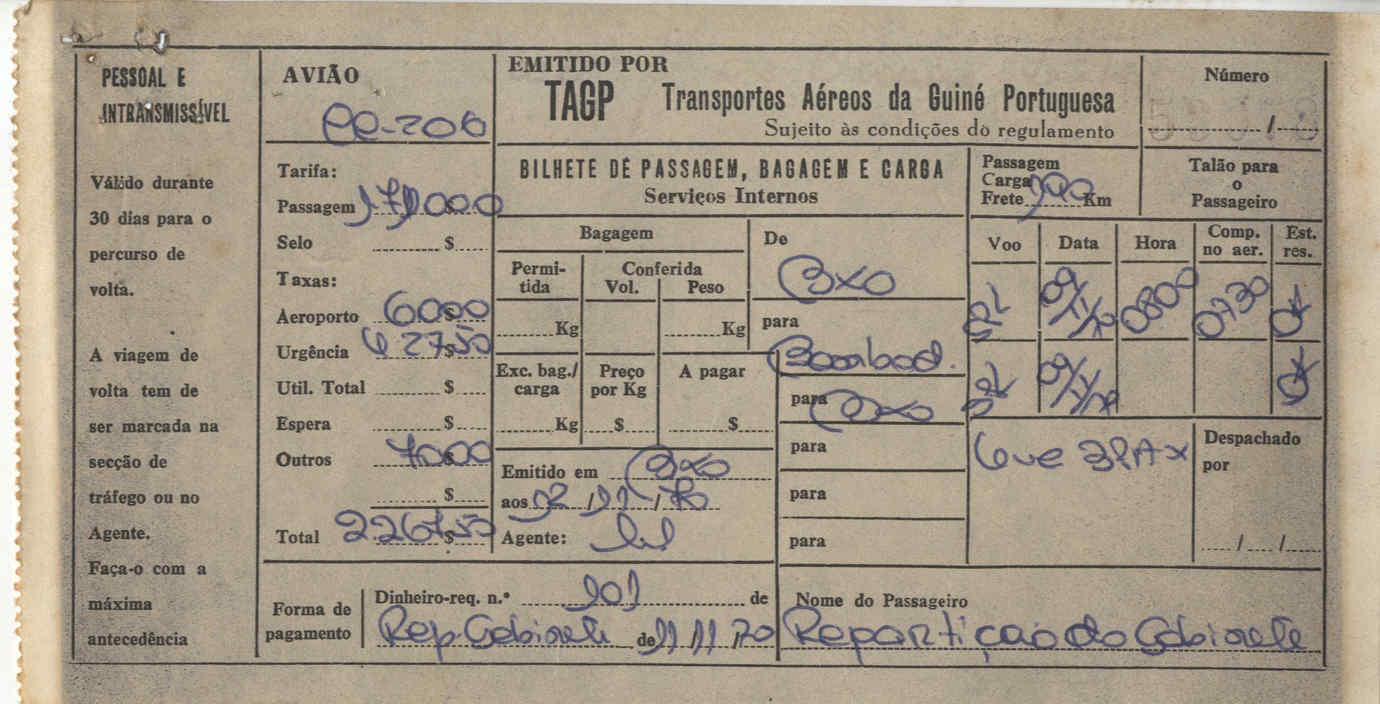 PESSOAL E
INTRANSMISSÍVEL
Válido durante
30 dias para o
percurso de
volta.
A viagem de
volta tem de
ser marcada na
secção de
tráfego ou no
Agente.
Faça-o com a
máxima
antecedência
AVIÃO
Tarifa:
Passagem
Selo $
Taxas:
Aeroporto 6000
Urgência 62750
Util. Total $
Espera $
Outros 7000
$
Total
EMITIDO POR
TAGP Transportes Aéreos da Guiné Portuguesa
Sujeito às condições do regulamento
Número
/
BILHETE DE PASSAGEM, BAGAGEM E CARGA
Serviços Internos
Passagem
Carga
Frete Km
Talão para
o
Passageiro
Bagagem
Permi-
tida
Conferida
Vol. Peso
Kg Kg
Exc. bag./
carga
Preço
por Kg
A pagar
Kg $ $
De BXO
para
para BXO
para
para
para
Voo Data Hora Comp.
no aer.
Est.
res.
0800 0730 OK
OK
Despachado
por
/ /
Emitido em BXO
aos
Agente:
Forma de
pagamento
Dinheiro-req. n.º 101 de
Rep. Gabinete de 11/11/70
Nome do Passageiro
Repartição do Gabinete